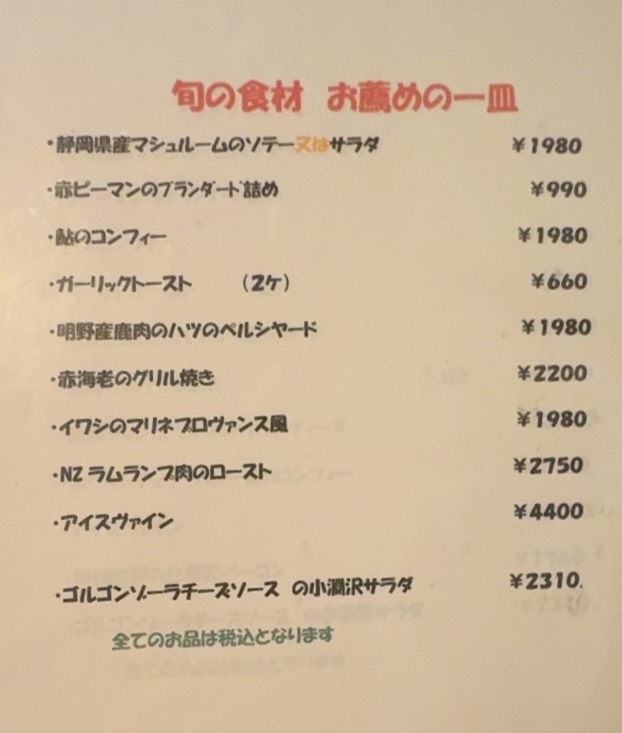 旬の食材 お薦めの一皿
・静岡県産マシュルームのソテー又はサラダ ¥1980
・赤ピーマンのブランダード詰め ¥990
・鮎のコンフィー ¥1980
・ガーリックトースト (2ケ) ¥660
・明野産鹿肉のハツのペルシヤード ¥1980
・赤海老のグリル焼き ¥2200
・イワシのマリネプロヴァンス風 ¥1980
・NZ ラムランプ肉のロースト ¥2750
・アイスヴァイン ¥4400
・ゴルゴンゾーラチーズソース の小淵沢サラダ ¥2310.
全てのお品は税込となります